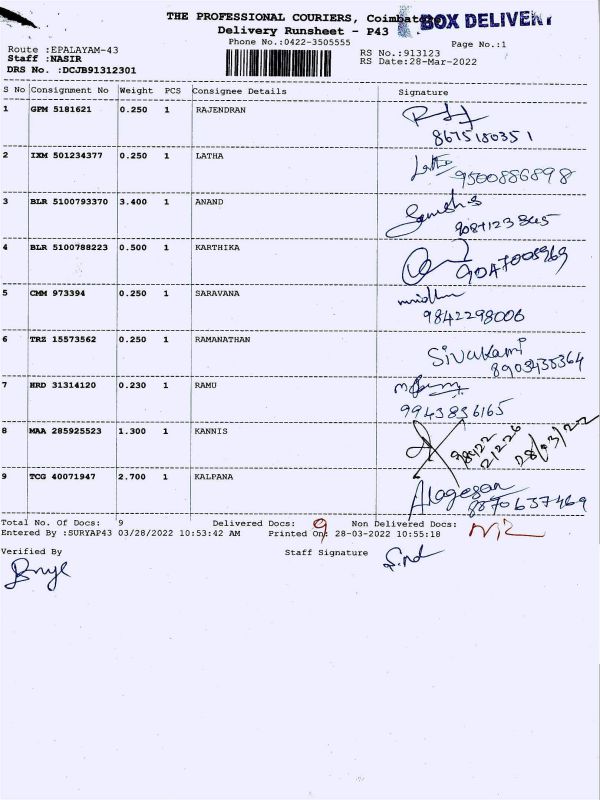 THE PROFESSIONAL COURIERS, Coimbatore
BOX DELIVERY
Delivery Runsheet - P43
Phone No.:0422-3505555
Page No.:1
Route :EPALAYAM-43
RS No.:913123
Staff :NASIR
RS Date:28-Mar-2022
DRS No. :DCJB91312301
S No Consignment No Weight PCS Consignee Details Signature
1 GPM 5181621 0.250 1 RAJENDRAN
8675180351
2 IXM 501234377 0.250 1 LATHA
Latha 9500886898
3 BLR 5100793370 3.400 1 ANAND
9087123845
4 BLR 5100788223 0.500 1 KARTHIKA
9047008969
5 CMM 973394 0.250 1 SARAVANA
9842298006
6 TRZ 15573562 0.250 1 RAMANATHAN
Sivakami
8903435364
7 HRD 31314120 0.230 1 RAMU
9943836165
8 MAA 285925523 1.300 1 KANNIS
28/03/2022
9 TCG 40071947 2.700 1 KALPANA
Alagesan
8870637469
Total No. Of Docs: 9 Delivered Docs: 9 Non Delivered Docs: Nil
Entered By :SURYAP43 03/28/2022 10:53:42 AM Printed On: 28-03-2022 10:55:18
Verified By Staff Signature